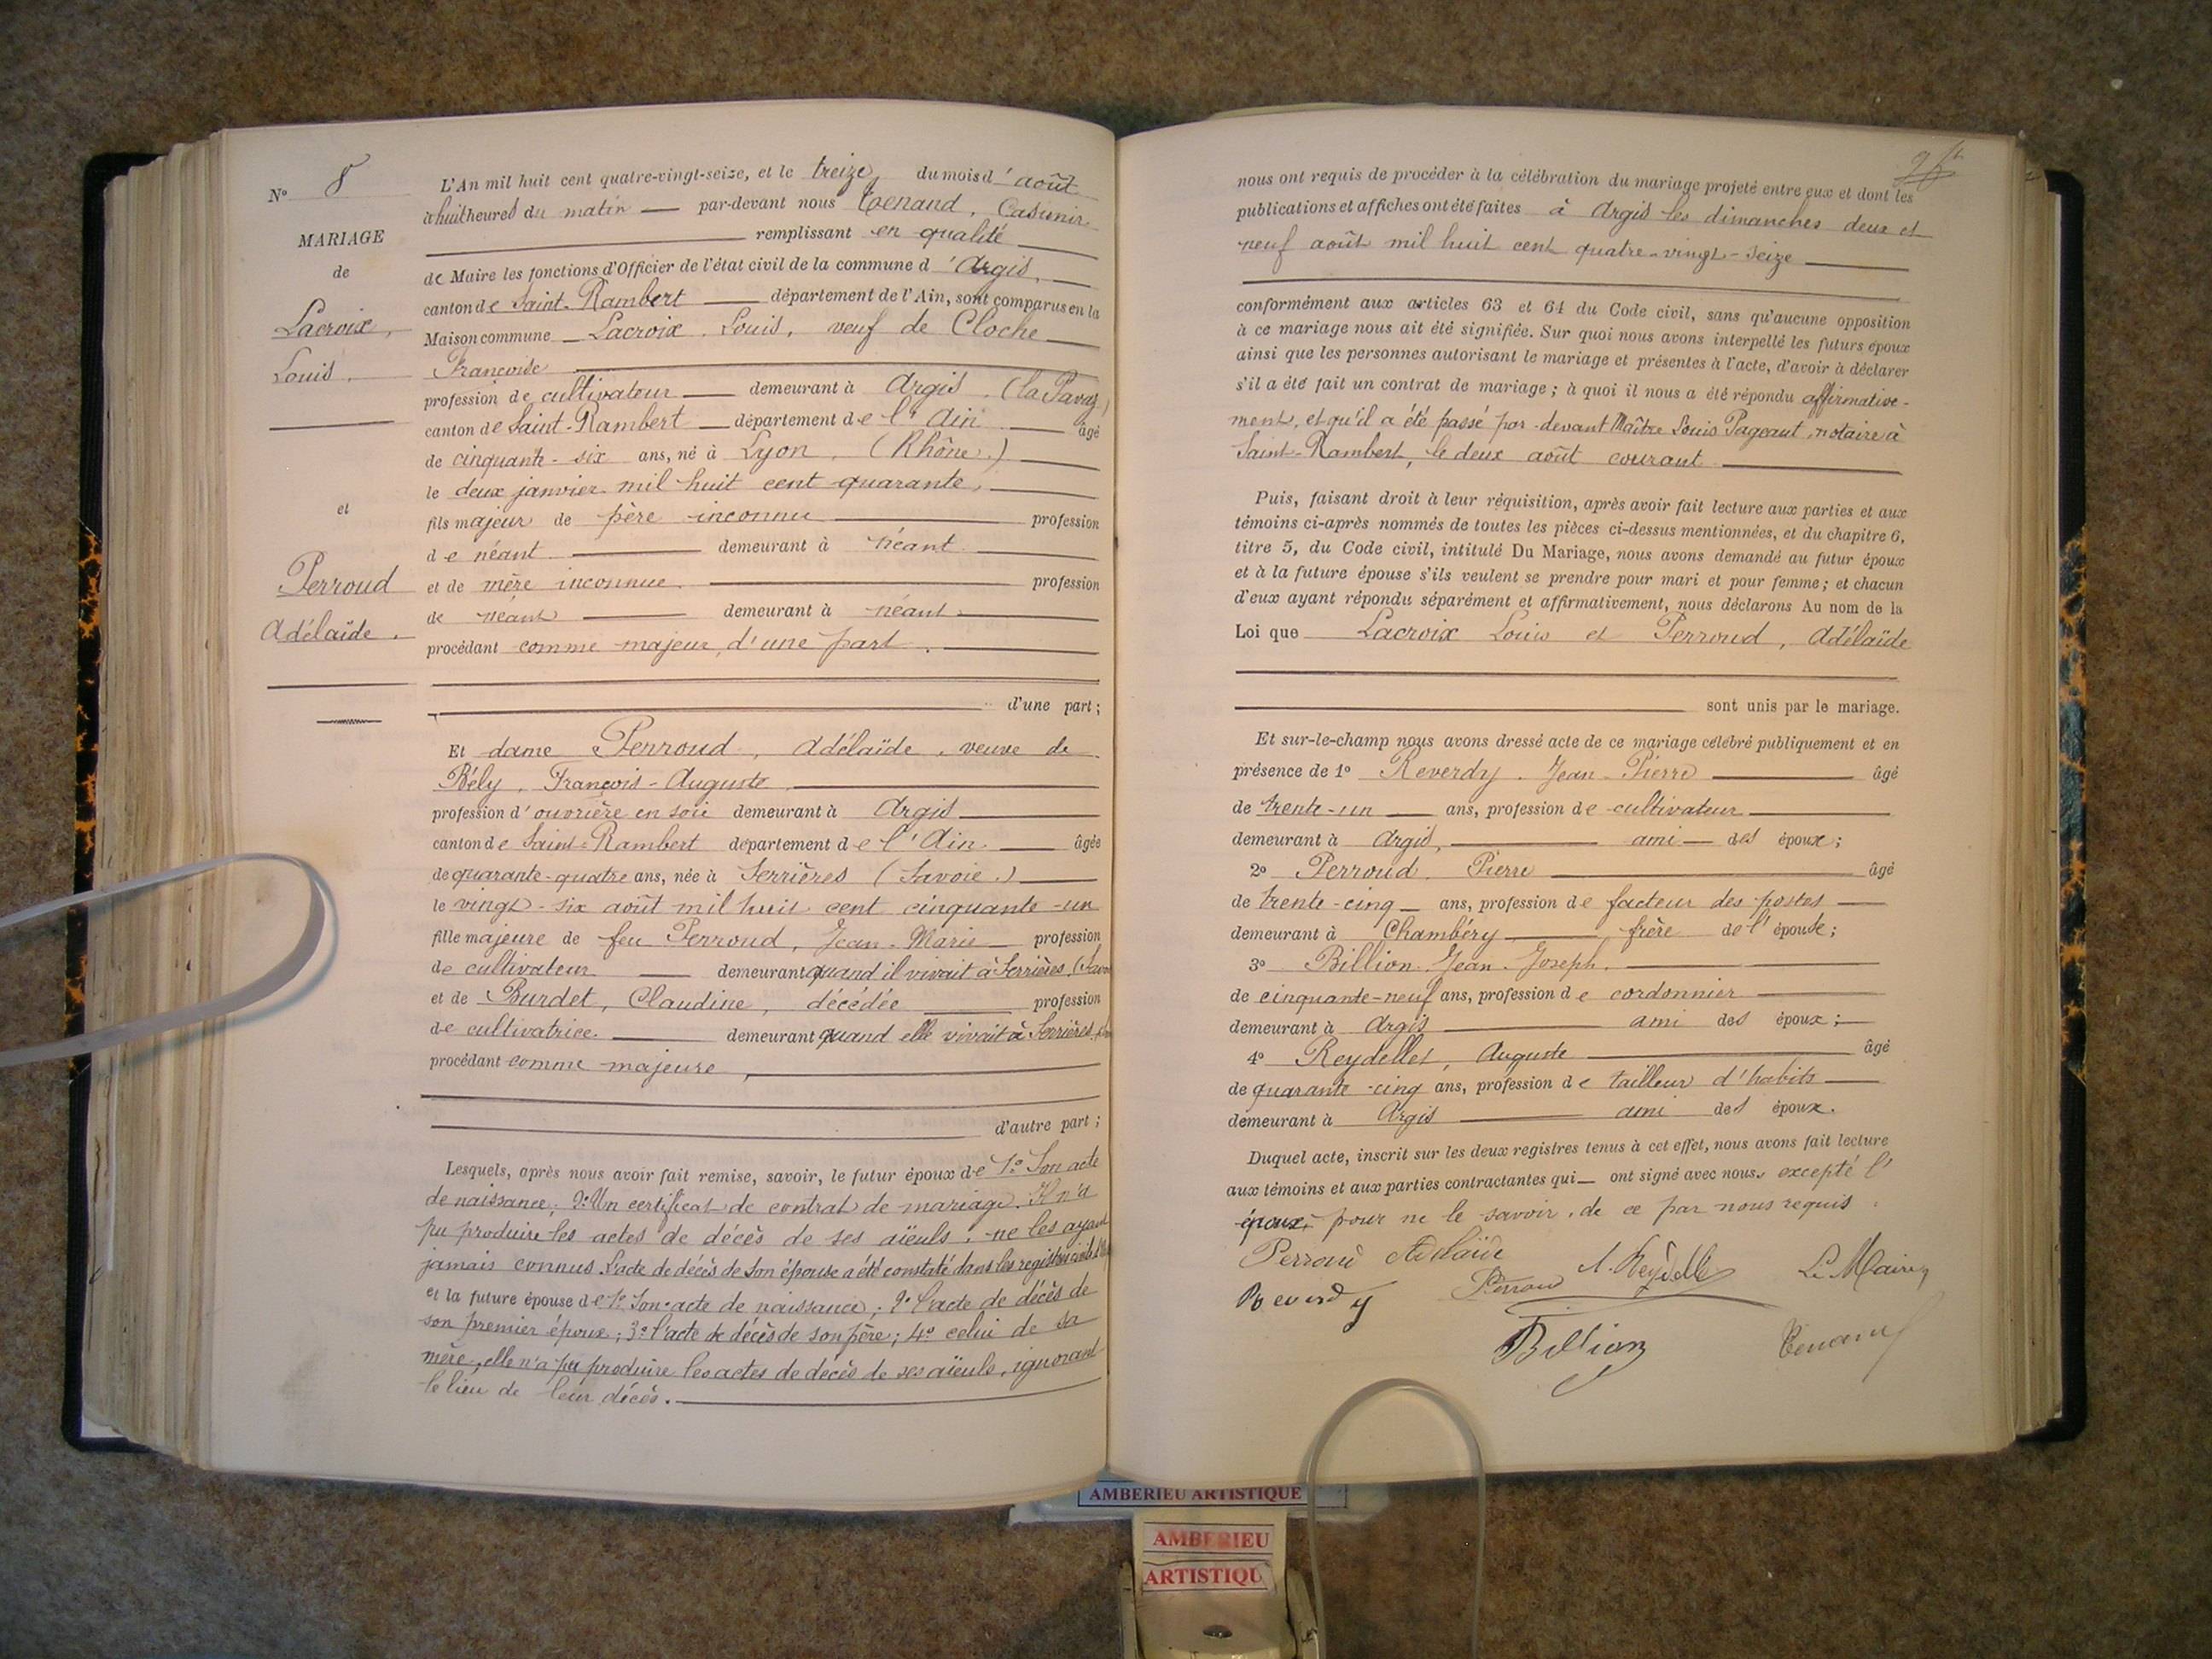 N° 8
MARIAGE
de
Lacroix,
Louis.
et
Perroud
Adélaïde.
L'An mil huit cent quatre-vingt-seize, et le treize, du mois d'août
à huit heures du matin par-devant nous Tenand, Casimir
remplissant en qualité
de Maire les fonctions d'Officier de l'état civil de la commune d'Argis,
canton de Saint-Rambert département de l'Ain, sont comparus en la
Maison commune Lacroix, Louis, veuf de Cloche
Françoise
profession de cultivateur demeurant à Argis, (la Pavaz)
canton de Saint-Rambert département de l'Ain âgé
de cinquante-six ans, né à Lyon, (Rhône.)
le deux janvier mil huit cent quarante,
fils majeur de père inconnu profession
de néant demeurant à néant
et de mère inconnue. profession
de néant demeurant à néant
procédant comme majeur, d'une part.
d'une part;
Et dame Perroud, Adélaïde, veuve de
Bély, François-Auguste,
profession d'ouvrière en soie demeurant à Argis
canton de Saint-Rambert département de l'Ain. âgée
de quarante-quatre ans, née à Serrières (Savoie.)
le vingt-six août mil huit cent cinquante-un
fille majeure de feu Perroud, Jean-Marie profession
de cultivateur demeurant quand il vivait à Serrières, (Savo
et de Burdet, Claudine, décédée profession
de cultivatrice. demeurant quand elle vivait à Serrières
procédant comme majeure,
d'autre part;
Lesquels, après nous avoir fait remise, savoir, le futur époux de 1° Son acte
de naissance; 2° Un certificat de contrat de mariage. Il n'a
pu produire les actes de décès de ses aïeuls, ne les ayant
jamais connus. L'acte de décès de son épouse a été constaté dans les registres
et la future épouse de 1° Son acte de naissance; 2° l'acte de décès de
son premier époux; 3° l'acte de décès de son père; 4° celui de sa
mère, elle n'a pu produire les actes de décès de ses aïeuls, ignorant
le lieu de leur décès.
nous ont requis de procéder à la célébration du mariage projeté entre eux et dont les
publications et affiches ont été faites à Argis les dimanches deux et
neuf août mil huit cent quatre-vingt-seize
conformément aux articles 63 et 64 du Code civil, sans qu'aucune opposition
à ce mariage nous ait été signifiée. Sur quoi nous avons interpellé les futurs époux
ainsi que les personnes autorisant le mariage et présentes à l'acte, d'avoir à déclarer
s'il a été fait un contrat de mariage; à quoi il nous a été répondu affirmative-
ment, et qu'il a été passé par-devant Maître Louis Pageaut, notaire à
Saint-Rambert, le deux août courant.
Puis, faisant droit à leur réquisition, après avoir fait lecture aux parties et aux
témoins ci-après nommés de toutes les pièces ci-dessus mentionnées, et du chapitre 6,
titre 5, du Code civil, intitulé Du Mariage, nous avons demandé au futur époux
et à la future épouse s'ils veulent se prendre pour mari et pour femme; et chacun
d'eux ayant répondu séparément et affirmativement, nous déclarons Au nom de la
Loi que Lacroix Louis et Perroud, Adélaïde
sont unis par le mariage.
Et sur-le-champ nous avons dressé acte de ce mariage célébré publiquement et en
présence de 1° Reverdy, Jean-Pierre âgé
de trente-un ans, profession de cultivateur
demeurant à Argis, ami des époux;
2° Perroud, Pierre âgé
de trente-cinq ans, profession de facteur des postes
demeurant à Chambéry frère de l'épouse;
3° Billion, Jean-Joseph,
de cinquante-neuf ans, profession de cordonnier
demeurant à Argis ami des époux;
4° Reydellet, Auguste âgé
de quarante-cinq ans, profession de tailleur d'habits
demeurant à Argis ami des époux.
Duquel acte, inscrit sur les deux registres tenus à cet effet, nous avons fait lecture
aux témoins et aux parties contractantes qui ont signé avec nous, excepté l'
époux, pour ne le savoir, de ce par nous requis.
Perroud Adelaïde A. Reydellet Le Maire,
Reverdy Perroud
Billion Tenand
AMBERIEU ARTISTIQUE
AMBERIEU
ARTISTIQU